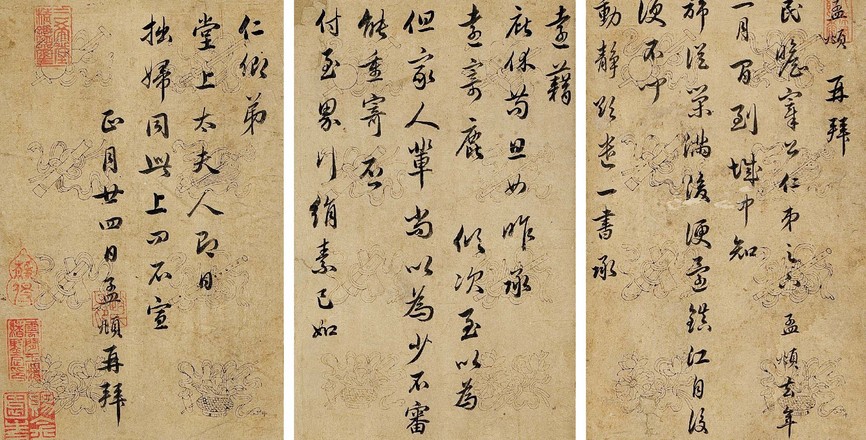 孟頫 再拜
民瞻宰公仁弟足下孟頫去年
一月間到城中知
旆從榮滿後便還鎮江自後
便不聞
動靜欲遣一書承
遠藉
庇休苟且如昨承
遠寄鹿 領次至以為
但家人輩尚以為少不審
能重寄否
付至界行絹素已如
仁卿弟
堂上太夫人即日
拙婦同此上問不宣
正月廿四日孟頫再拜